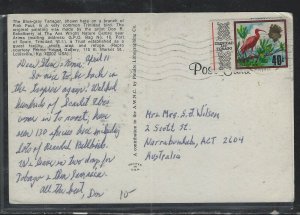 The Blue-gray Tanager, shown here on a branch of
Pink Poui, is a very common Trinidad bird. The
original painting was made by the artist Don R.
Eckelberry at The Asa Wright Nature Center near
Arima (mailing address: G.P.O. Bag No. 10, Port
of Spain, Trinidad, W.I.), a Trust established as a
guest facility, wildlife area and refuge. Repro
courtesy Frame House Gallery, 110 E. Market St.,
Louisville, Ky. 40202 USA
Post Card
40c
Dear Steve & Norma, Wed 11
So nice to be back in
the tropics again! Watched
hundreds of Scarlet Ibis
come in to roost, have
seen 130 species here including
lots of Bearded Bellbirds.
We leave in two days for
Tobago & then Jamaica.
All the best, Don
10-
A contribution to the A.W.N.C. by Foulds Lithographing Co.
Mr & Mrs. S. J. Wilson
2 Scott St.
Narrabundah, ACT 2604
Australia